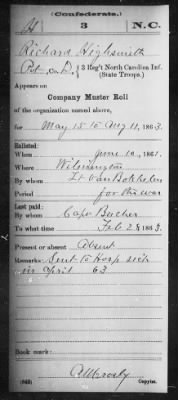 (Confederate.)
H 3 N.C.
Richard Highsmith
Pvt. Co. D, 3 Reg't North Carolina Inf.
(State Troops.)
Appears on
Company Muster Roll
of the organization named above,
for May 15 to Aug 11, 1863.
Enlisted:
When June 10, 1861.
Where Wilmington
By whom Lt Van Bokkelen
Period for the war
Last paid:
By whom Capt
To what time Feb 28 1863.
Present or absent Absent
Remarks: Sent to Hosp sick
in April 63
Book mark:
Copyist.